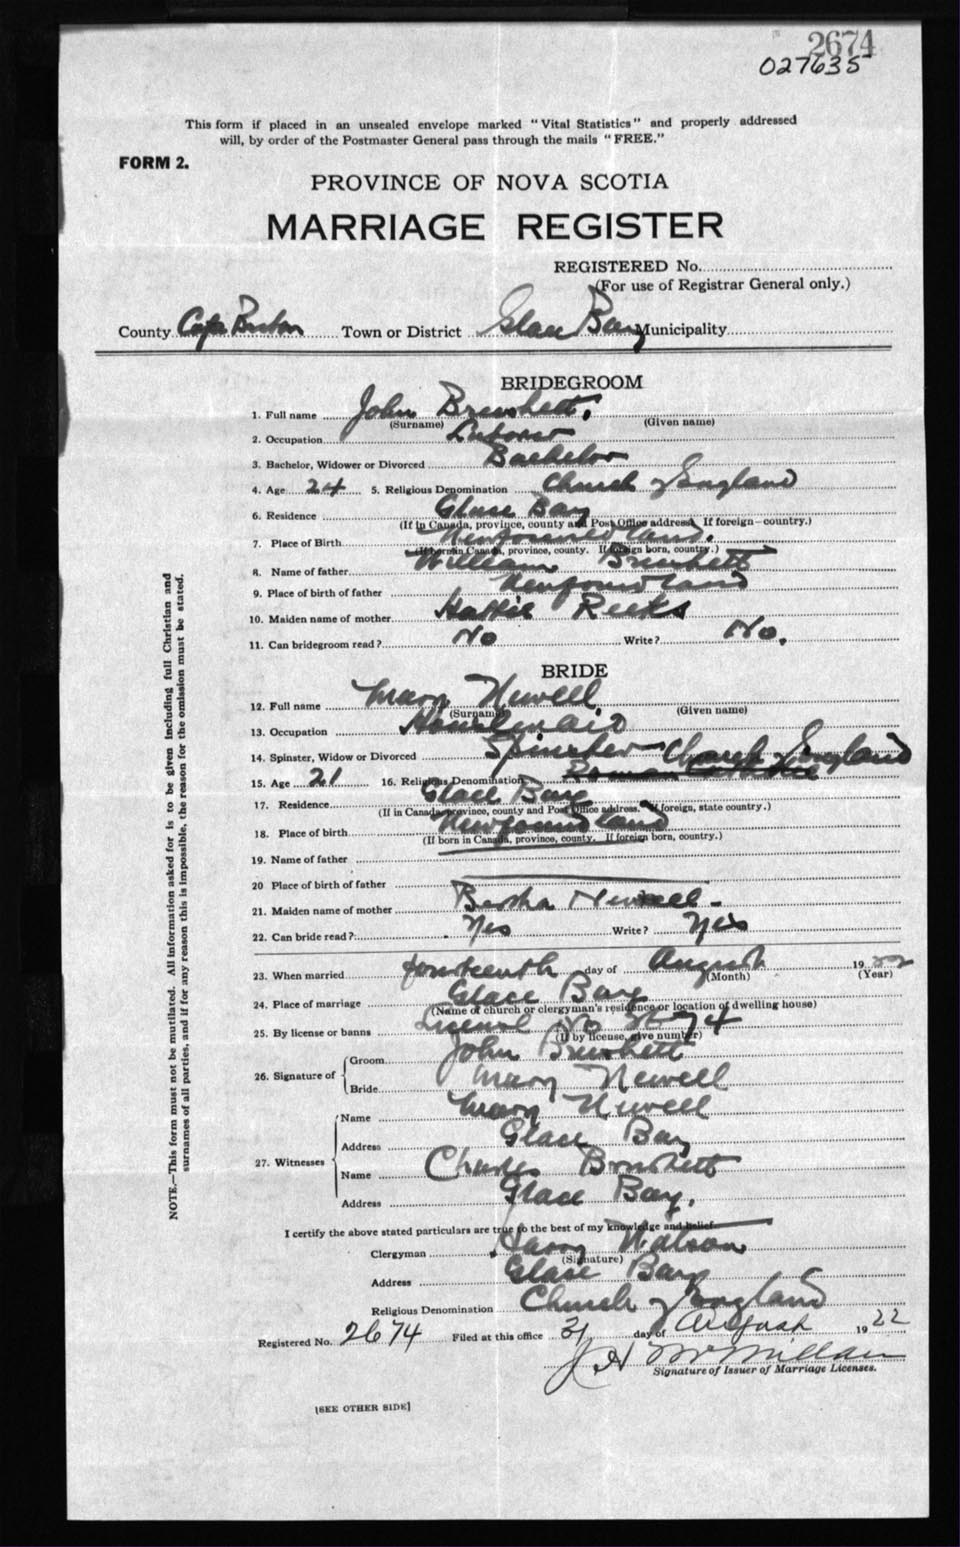 2674
027635
This form if placed in an unsealed envelope marked "Vital Statistics" and properly addressed
will, by order of the Postmaster General pass through the mails "FREE."
FORM 2.
PROVINCE OF NOVA SCOTIA
MARRIAGE REGISTER
REGISTERED No.
(For use of Registrar General only.)
County Cape Breton Town or District Glace Bay Municipality
BRIDEGROOM
1. Full name John
(Surname) (Given name)
2. Occupation Laborer
3. Bachelor, Widower or Divorced Bachelor
4. Age 24 5. Religious Denomination Church of England
6. Residence Glace Bay
(If in Canada, province, county and Post Office address. If foreign—country.)
7. Place of Birth Newfoundland.
(If born in Canada, province, county. If foreign born, country.)
8. Name of father William
9. Place of birth of father Newfoundland
10. Maiden name of mother Hattie Reeks
11. Can bridegroom read? No Write? No.
BRIDE
12. Full name Mary Newell
(Surname) (Given name)
13. Occupation Housemaid
14. Spinster, Widow or Divorced Spinster
Church of England
15. Age 21 16. Religious Denomination Roman Catholic
17. Residence Glace Bay
(If in Canada, province, county and Post Office address. If foreign, state country.)
18. Place of birth Newfoundland
(If born in Canada, province, county. If foreign born, country.)
19. Name of father
20 Place of birth of father
21. Maiden name of mother Bertha Newell
22. Can bride read? Yes Write? Yes
23. When married fourteenth day of August 1922
(Month) (Year)
24. Place of marriage Glace Bay
(Name of church or clergyman's residence or location of dwelling house)
25. By license or banns License No 2674
(If by license, give number)
26. Signature of Groom John
Bride Mary Newell
27. Witnesses Name Mary Newell
Address Glace Bay
Name Charles
Address Glace Bay.
I certify the above stated particulars are true to the best of my knowledge and belief
Clergyman Harry Watson
(Signature)
Address Glace Bay
Religious Denomination Church of England
Registered No. 2674 Filed at this office 31 day of August 1922
J H McMillan
Signature of Issuer of Marriage Licenses.
[SEE OTHER SIDE]
NOTE.—This form must not be mutilated. All information asked for is to be given including full Christian and
surnames of all parties, and if for any reason this is impossible, the reason for the omission must be stated.